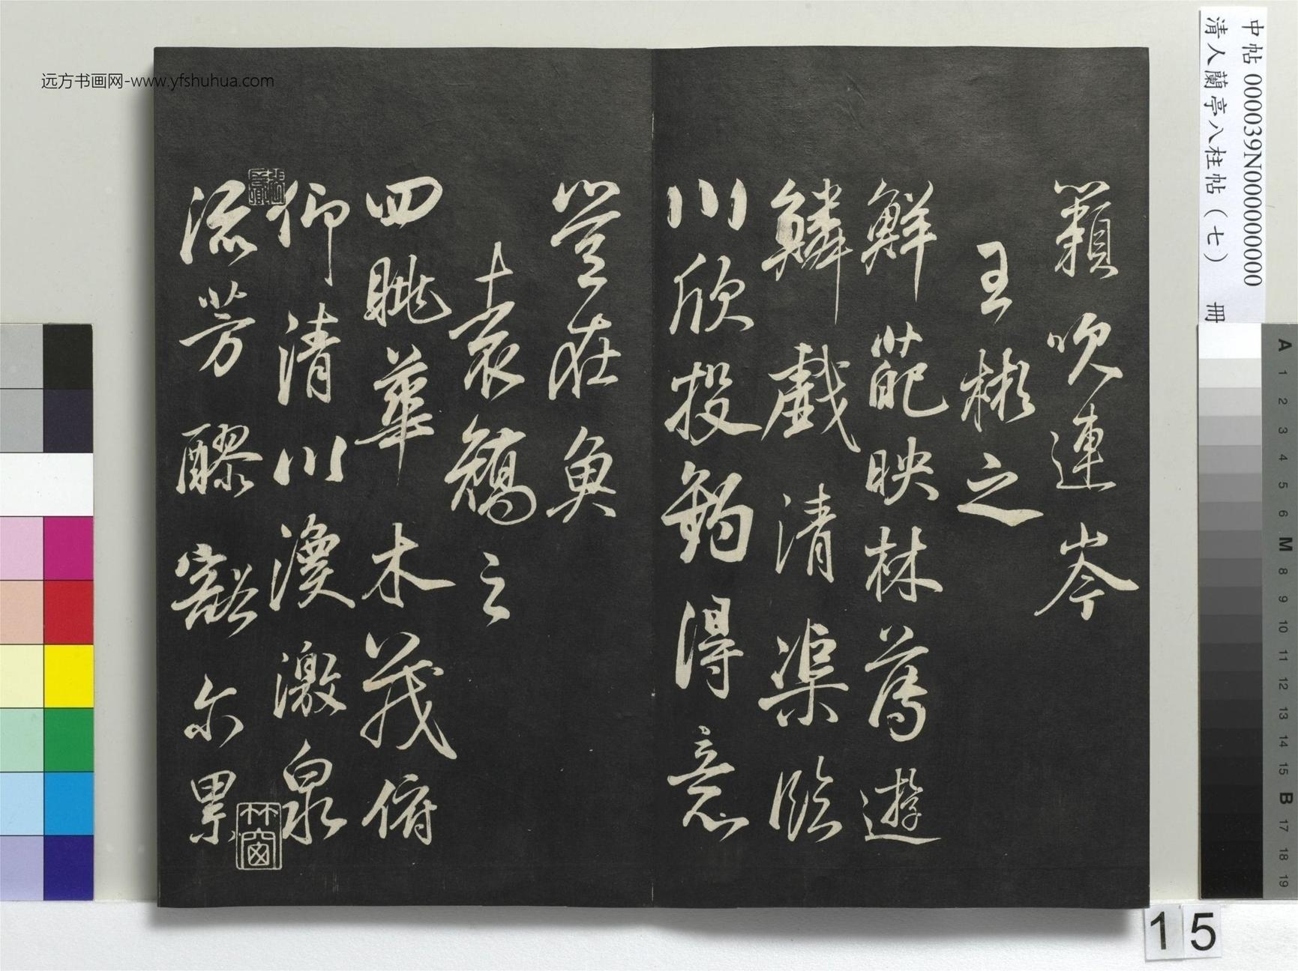 籟吹連岑
王彬之
鮮葩映林薄遊
鱗戲清渠臨
川欣投釣得意
豈在魚
袁嶠之
四眺華木茂俯
仰清川渙激泉
流芳醪豁尔累
竹窗
远方书画网-www.yfshuhua.com
中帖 000039N000000000
清人蘭亭八柱帖(七) 冊
A
1
2
3
4
5
6
M
8
9
10
11
12
13
14
15
B
17
18
19
15